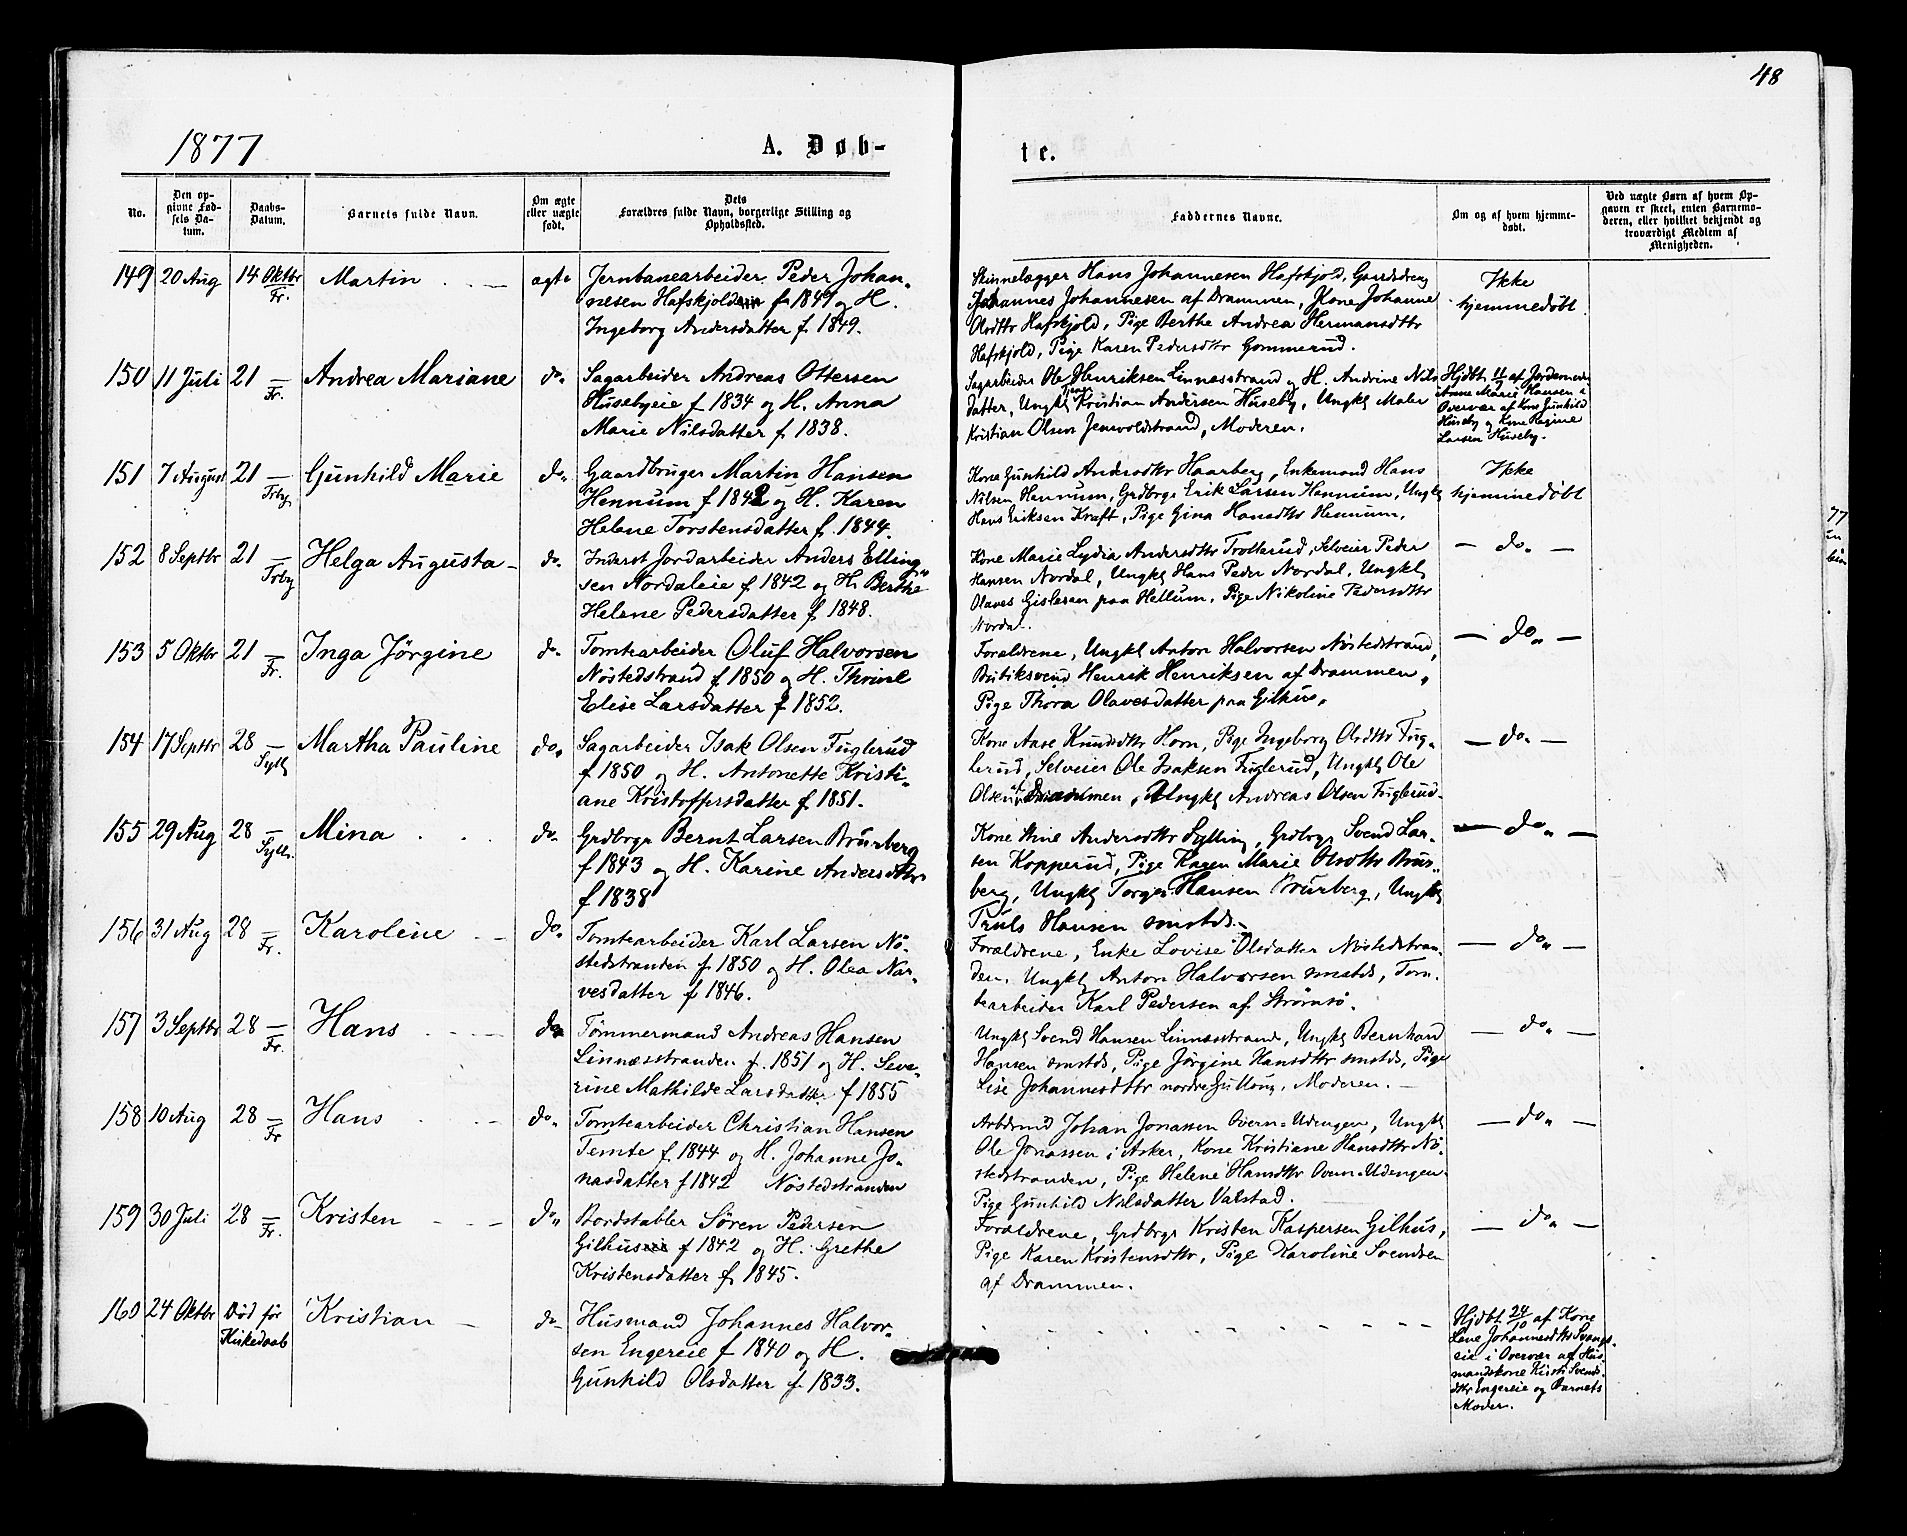 48
1877
A. Døb-
te.
No.
Den op-
givne Fød-
sels Da-
tum.
Daabs-
Datum.
Barnets fulde Navn.
Om ægte
eller uægte
født.
Dets
Forældres fulde Navn, borgerlige Stilling og
Opholdssted.
Faddernes Navne.
Om og af hvem hjemme-
døbt.
Ved uægte Børn af hvem Op-
gaven er skeet, enten Barnemo-
deren, eller hvilket bekjendt og
troværdigt Medlem af
Menigheden.
149 20 Aug 14 Oktbr Martin ægte Jernbanearbeider Peder Johan-
Fr. nesen Hafskjold f 1849 og H.
Ingeborg Andersdatter f. 1849.
Skinnelægger Hans Johannesen Hafskjold, Gaardsdreng
Johannes Johannesen af Drammen, Kone Johanne
Olsdttr Hafskjold, Pige Berthe Andrea Hermansdttr
Hafskjold, Pige Karen Pedersdttr Gommerud.
Ikke
hjemmedøbt
150 11 Juli 21 Andrea Mariane do. Sagarbeider Andreas Ottersen
Fr. Husebyeie f 1834 og H. Anna
Marie Nilsdatter f. 1838.
Sagarbeider Ole Henriksen Linnesstrand og H. Andrine Nils
datter, Ungkl Kristian Andersen Huseby, Ungkl Maler
Kristian Olsen Jensvoldstrand, Moderen.
Hjdbt 11/7 af Jordemoder
Anne Marie Hansen i
Overvær af Kone Gunhild
Huseby og Kone Regine
Larsen Huseby.
151 7 August 21 Gunhild Marie do. Gaardbruger Martin Hansen
Frby Hennum f 1842 og H. Karen
Helene Torstensdatter f. 1844.
Kone Gunhild Andersdttr Haarberg, Enkemand Hans
Nilsen Hennum, Grdbrgr Erik Larsen Hennum, Ungkl
Hans Eriksen Kraft, Pige Gina Hansdttr Hennum.
Ikke
hjemmedøbt
152 8 Septbr 21 Helga Augusta do. Inderst Jordarbeider Anders Elling-
Frby sen Nordaleie f 1842 og H. Berthe
Helene Pedersdatter f 1848.
Kone Marie Lydia Andersdttr Trotterud, Selveier Peder
Hansen Nordal, Ungkl Hans Peder Nordal, Ungkl
Olaves Gislesen paa Hellum, Pige Nikoline Pedersdttr
Nordal.
— do. —
153 5 Oktbr 21 Inga Jørgine do. Tomtearbeider Oluf Halvorsen
Fr. Nøstedstrand f 1850 og H. Thrine
Elise Larsdatter f 1852.
Forældrene, Ungkl Anton Halvorsen Nøstedstrand,
Butiksvend Henrik Henriksen af Drammen,
Pige Thora Olavesdatter paa Gilhus.
— do. —
154 17 Septbr 28 Martha Pauline do. Sagarbeider Isak Olsen Fuglerud
Syll f 1850 og H. Antonette Kristi-
ane Kristoffersdatter f 1851.
Kone Aase Knudsdttr Horn, Pige Ingeborg Olsdttr Fug-
lerud, Selveier Ole Isaksen Fuglerud, Ungkl Ole
Olsen af Drammen, Ungkl Andreas Olsen Fuglerud.
— do. —
155 29 Aug 28 Mina do. Grdbrgr Bernt Larsen Brurberg
Syll. f 1843 og H. Karine Andersdttr
f 1838
Kone Andersdttr Sylling, Grdbrgr Svend Lar-
sen Kopperud, Pige Karen Marie Olsdttr Brur-
berg, Ungkl Torger Hansen Brurberg, Ungkl
Truls Hansen smstds.
— do. —
156 31 Aug 28 Karoline do. Tomtearbeider Karl Larsen Nø-
Fr. stedstranden f 1850 og H. Olea Nar-
vesdatter f 1846.
Forældrene, Enke Lovise Olsdatter Nøstedstran-
den, Ungkl Anton Halvorsen smstds, Tom-
tearbeider Karl Pedersen af Strømsø.
— do. —
157 3 Septbr 28 Hans do. Tømmermand Andreas Hansen
Fr. Linnesstranden f. 1851 og H. Seve-
rine Mathilde Larsdatter f 1855
Ungkl Svend Hansen Linnesstrand, Ungkl Bernhard
Hansen smstds, Pige Jørgine Hansdttr smstds, Pige
Lise Johannesdttr nordre Gullaug, Moderen.
— do. —
158 10 Aug 28 Hans do. Tomtearbeider Christian Hansen
Fr Temte f. 1844 og H. Johanne Jo-
nasdatter f 1842 Nøstedstranden
Arbdsmd Johan Jonassen Overn-Udengen, Ungkl
Ole Jonassen i Asker, Kone Kristiane Hansdttr Nø-
stedstranden, Pige Helene Hansdttr Overn-Udengen
Pige Gunhild Nilsdatter Valstad.
— do. —
159 30 Juli 28 Kristen do. Bordstabler Søren Pedersen
Fr. Gilhuseie f 1842 og H. Grethe
Kristensdatter f. 1845.
Forældrene, Grdbrgr Kristen Kaspersen Gilhus,
Pige Karen Kristensdttr, Pige Karoline Svendsen
af Drammen.
— do. —
160 24 Oktbr Død før Kristian do. Husmand Johannes Halvor-
Kirkedaab sen Engereie f 1840 og H.
Gunhild Olsdatter f. 1833.
Hjdbt 24/10 af Kone
Lene Johannesdttr Svangs-
eie i Overvær af Hus-
mandskone Kirsti Svends-
dttr Engereie og Barnets
Moder.
77